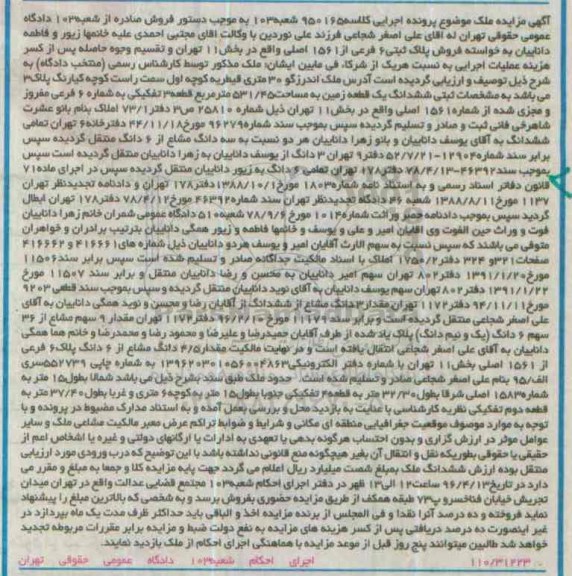 آگهی مزایده ملک موضوع پرونده اجرایی کلاسه ۹۵۰۱۶۵ شعبه۱۰۳ به موجب دستور فروش صادره از شعبه۱۰۳ دادگاه
عمومی حقوقی تهران له آقای علی اصغر شجاعی فرزند علی نوردین با وکالت آقای مجتبی احمدی علیه خانمها زیور و فاطمه
دانائیان به خواسته فروش پلاک ثبتی۶ فرعی از۱۵۶۱ اصلی واقع در بخش۱۱ تهران و تقسیم وجوه حاصله پس از کسر
هزینه عملیات اجرایی به نسبت هریک از شرکا، فی مابین ایشان؛ ملک مذکور توسط کارشناس رسمی (منتخب دادگاه) به
شرح ذیل توصیف و ارزیابی گردیده است آدرس ملک اندرزگو ۳۰ متری قیطریه کوچه اول سمت راست کوچه گیارنگ پلاک۳
می باشد به مشخصات ثبتی ششدانگ یک قطعه زمین به مساحت۵۳۱/۴۵ مترمربع قطعه۳ تفکیکی به شماره ۶ فرعی مفروز
و مجزی شده از شماره۱۵۶۱ اصلی واقع در بخش۱۱ تهران ذیل شماره ۲۵۸۱۰ ص۳ دفتر۷۳/۱ املاک بنام بانو عشرت
شاهرخی فانی ثبت و صادر و تسلیم گردیده سپس بموجب سند شماره۹۶۲۷۹ مورخ۴۴/۱۱/۱۸ دفترخانه۶ تهران تمامی
ششدانگ به آقای یوسف دانائیان و بانو زهرا دانائیان هر دو نسبت به سه دانگ مشاع از ۶ دانگ منتقل گردیده سپس
برابر سند شماره۱۲۹۰۴-۵۲/۷/۲۱ دفتر۹ تهران ۳ دانگ از یوسف دانائیان به زهرا دانائیان منتقل گردیده است سپس
بموجب سند۴۶۳۹۲-۷۸/۴/۱۳ دفتر۱۷۸ تهران تمامی ۶ دانگ به زیور دانائیان منتقل گردیده سپس در اجرای ماده۷۱
قانون دفاتر اسناد رسمی و به استناد نامه شماره۱۸۰۳ مورخ۱۳۸۸/۱۰/۱ دفتر۱۷۸ تهران و دادنامه تجدیدنظر تهران
۱۱۳۷ مورخ۱۳۸۸/۸/۱۱ شعبه ۴۶ دادگاه تجدیدنظر تهران سند شماره۴۶۳۹۲ مورخ۷۸/۴/۱۲ دفتر۱۷۸ تهران ابطال
گردید سپس بموجب دادنامه حصر وراثت شماره۱۰۱۴ مورخ ۷۸/۹/۶ شعبه۵۱۰ دادگاه عمومی شمران خانم زهرا دانائیان
فوت و وراث حین الفوت وی آقایان امیر و علی و یوسف و خانمها فاطمه و زیور همگی دانائیان بترتیب برادران و خواهران
متوفی می باشند که سپس نسبت به سهم الارث آقایان امیر و یوسف هردو دانائیان ذیل شماره های۴۱۶۶۶۱ و ۴۱۶۶۶۲
صفحات۳۲۱ و ۳۲۴ دفتر۱۷۵۰/۲ املاک با اسناد مالکیت جداگانه صادر و تسلیم شده است سپس برابر سند۱۱۵۰۶
مورخ۱۳۹۱/۱/۲۰ دفتر۸۰۲ تهران سهم امیر دانائیان به محسن و رضا دانائیان منتقل و برابر سند ۱۱۵۰۷ مورخ
۱۳۹۱/۱/۲۲ دفتر۸۰۲ تهران سهم یوسف دانائیان به آقای نوید دانائیان منتقل گردیده و سپس بموجب سند قطعی ۹۲۰۳
مورخ۹۴/۱۱/۱۱ دفتر۱۱۷۲ تهران مقدار۳ دانگ مشاع از ششدانگ از آقایان رضا و محسن و نوید همگی دانائیان به آقای
علی اصغر شجاعی منتقل گردیده است و برابر سند مورخ۹۶/۲/۱۰ دفتر۱۱۷۲ تهران مقدار ۹ سهم مشاع از ۳۶
سهم ۶ دانگ (یک و نیم دانگ) پلاک یاد شده از طرف آقایان حمیدرضا و علیرضا و محمود رضا و محمدرضا و خانم هما همگی
دانائیان به آقای علی اصغر شجاعی انتقال یافته است و در نهایت مالکیت مقدار۴/۵ دانگ مشاع از ۶ دانگ پلاک۶ فرعی
از ۱۵۶۱ اصلی بخش۱۱ تهران با شماره دفتر الکترونیکی به شماره چاپی ۵۵۲۷۳۹ سری
الف/۹۵ بنام علی اصغر شجاعی صادر و تسلیم شده است. حدود ملک طبق سند بشرح ذیل می باشد شمالا بطول۱۵ متر به
شماره۱۵۸۳ اصلی شرقا بطول۳۲/۳۰ متر به قطعه۴ تفکیکی جنوبا بطول۱۵ متر به کوچه۶ متری و غربا بطول۳۷/۴۰ متر به
قطعه دوم تفکیکی نظریه کارشناسی با عنایت به بازدید محل و بررسی بعمل آمده و به استناد مدارک مضبوط در پرونده و با
توجه به موارد موصوف موقعیت جغرافیایی منطقه ای مکانی و شرایط و ضوابط تراکم عرض معبر مالکیت مشاعی ملک و سایر
عوامل موثر در ارزش گزاری و بدون احتساب هرگونه بدهی یا تعهدی به ادارات یا ارگانهای دولتی و غیره یا اشخاص اعم از
حقیقی یا حقوقی بطوریکه نقل و انتقال آن بغیر هیچگونه منع قانونی نداشته باشد با این توضیح که درب ورودی مورد ارزیابی
منتقل بوده ارزش ششدانگ ملک بمبلغ شصت میلیارد ریال اعلام می گردد جهت پایه مزایده کلا و جمعا به مبلغ و مقرر می
دارد در تاریخ۹۶/۴/۱۳ ساعت۱۲ الی۱۳ ظهر در دفتر اجرای احکام شعبه۱۰۳ مجتمع قضایی عدالت واقع در تهران میدان
تجریش خیابان فناخسرو پ۷۳ طبقه همکف از طریق مزایده حضوری بفروش برسد و به شخصی که بالاترین مبلغ را پیشنهاد
نماید فروخته و ده درصد آنرا نقدا و فی المجلس از برنده مزایده اخذ و الباقی باید حداکثر ظرف مدت یک ماه بپردازد در
غیر اینصورت ده درصد دریافتی پس از کسر هزینه های مزایده به نفع دولت ضبط و مزایده برابر مقررات مربوطه تجدید
خواهد شد طالبین میتوانند پنج روز قبل از موعد مزایده با هماهنگی اجرای احکام از ملک بازدید نمایند.
۱۱۰/۳۱۲۲۳ اجرای احکام شعبه۱۰۳ دادگاه عمومی حقوقی تهران